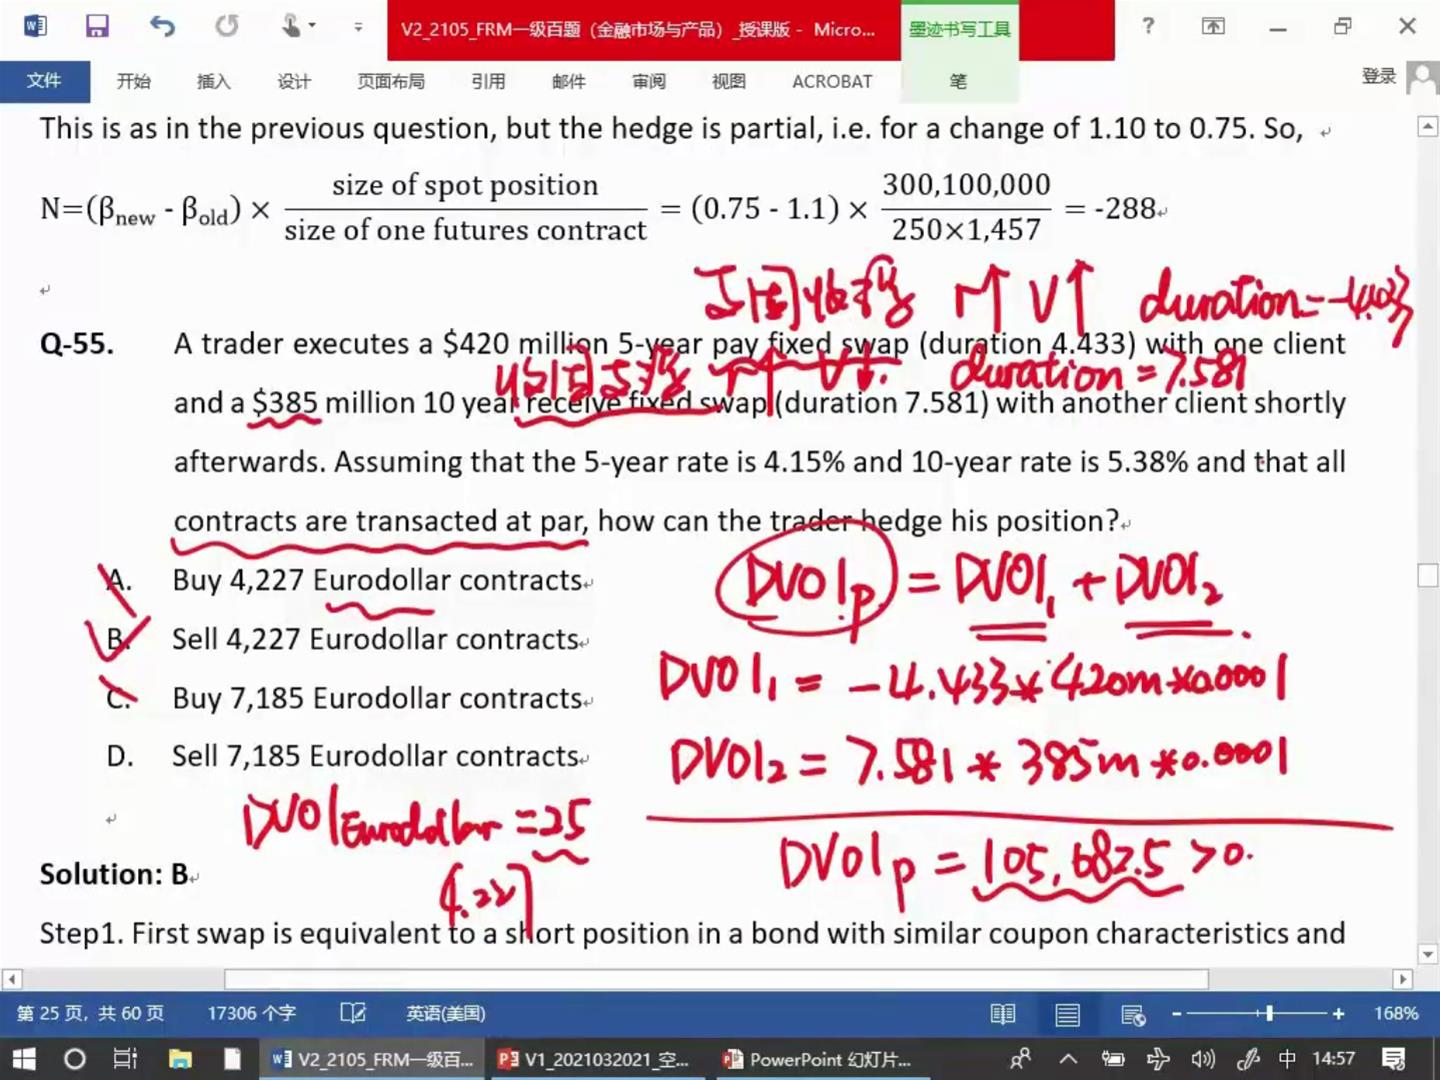 V2_2105_FRM一级百题（金融市场与产品）_授课版 - Micro...
墨迹书写工具
?
文件 开始 插入 设计 页面布局 引用 邮件 审阅 视图 ACROBAT 笔 登录
This is as in the previous question, but the hedge is partial, i.e. for a change of 1.10 to 0.75. So,
N=(βnew - βold) × size of spot position / size of one futures contract = (0.75 - 1.1) × 300,100,000 / 250×1,457 = -288
r↑ V↑ duration=-4.433
Q-55. A trader executes a $420 million 5-year pay fixed swap (duration 4.433) with one client
r↑ V↓. duration=7.581
and a $385 million 10 year receive fixed swap (duration 7.581) with another client shortly
afterwards. Assuming that the 5-year rate is 4.15% and 10-year rate is 5.38% and that all
contracts are transacted at par, how can the trader hedge his position?
A. Buy 4,227 Eurodollar contracts
DV01p = DV01₁ + DV01₂.
B. Sell 4,227 Eurodollar contracts
DV01₁ = -4.433*420m*0.0001
C. Buy 7,185 Eurodollar contracts
D. Sell 7,185 Eurodollar contracts
DV01₂ = 7.581*385m*0.0001
DV01Eurodollar = 25
DV01p = 105,682.5>0.
Solution: B
4.227
Step1. First swap is equivalent to a short position in a bond with similar coupon characteristics and
第 25 页，共 60 页 17306 个字 英语(美国) 168%
V2_2105_FRM一级百... V1_2021032021_空... PowerPoint 幻灯片... 中 14:57